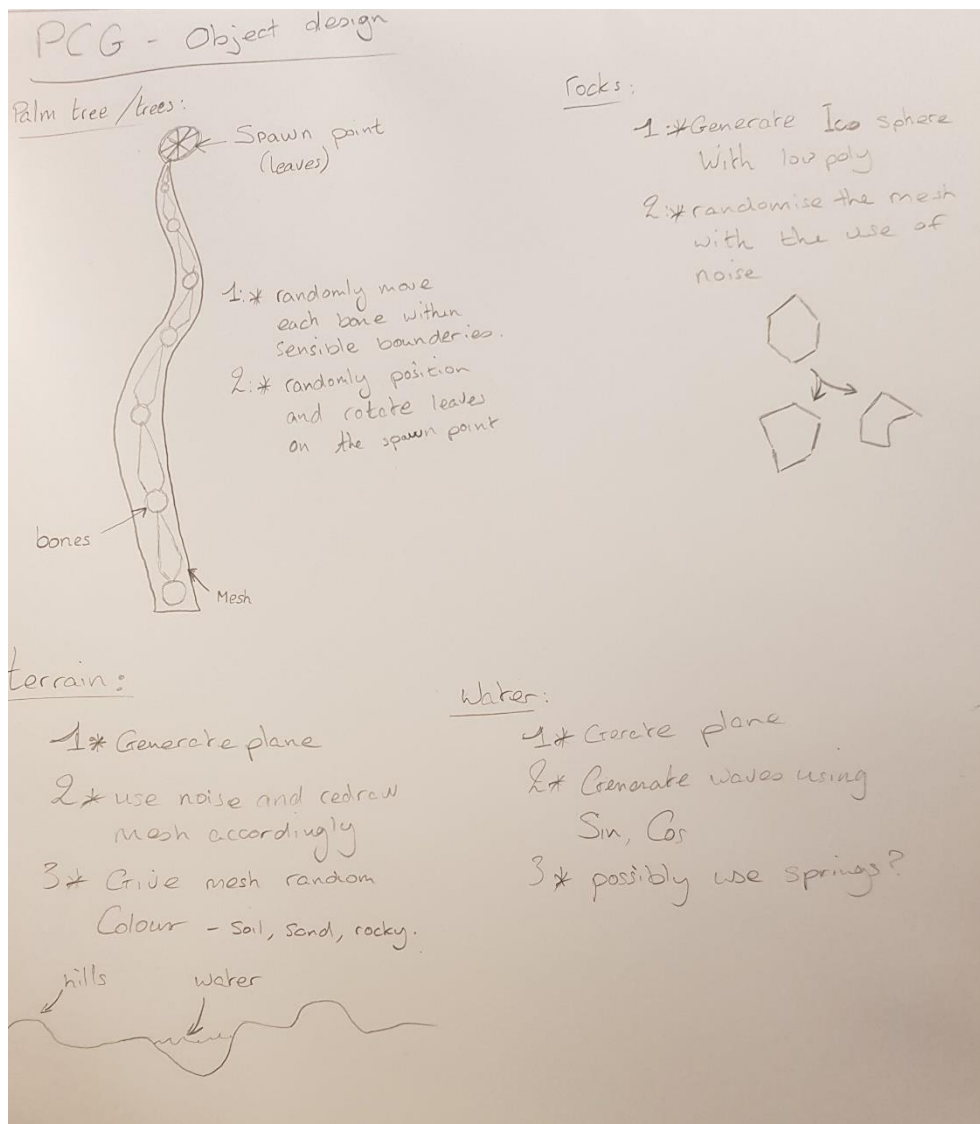 PCG - Object design
Palm tree/trees:
Spawn point
(leaves)
1:* randomly move
each bone within
sensible bounderies.
2:* randomly position
and rotate leaves
on the spawn point
bones
Mesh
rocks:
1:* Generate Ico sphere
With low poly
2:* randomise the mesh
with the use of
noise
terrain:
1* Generate plane
2* use noise and redraw
mesh accordingly
3* Give mesh random
Colour - Soil, Sand, rocky.
hills
water
Water:
1* plane
2* Generate waves using
Sin, Cos
3* possibly use springs?